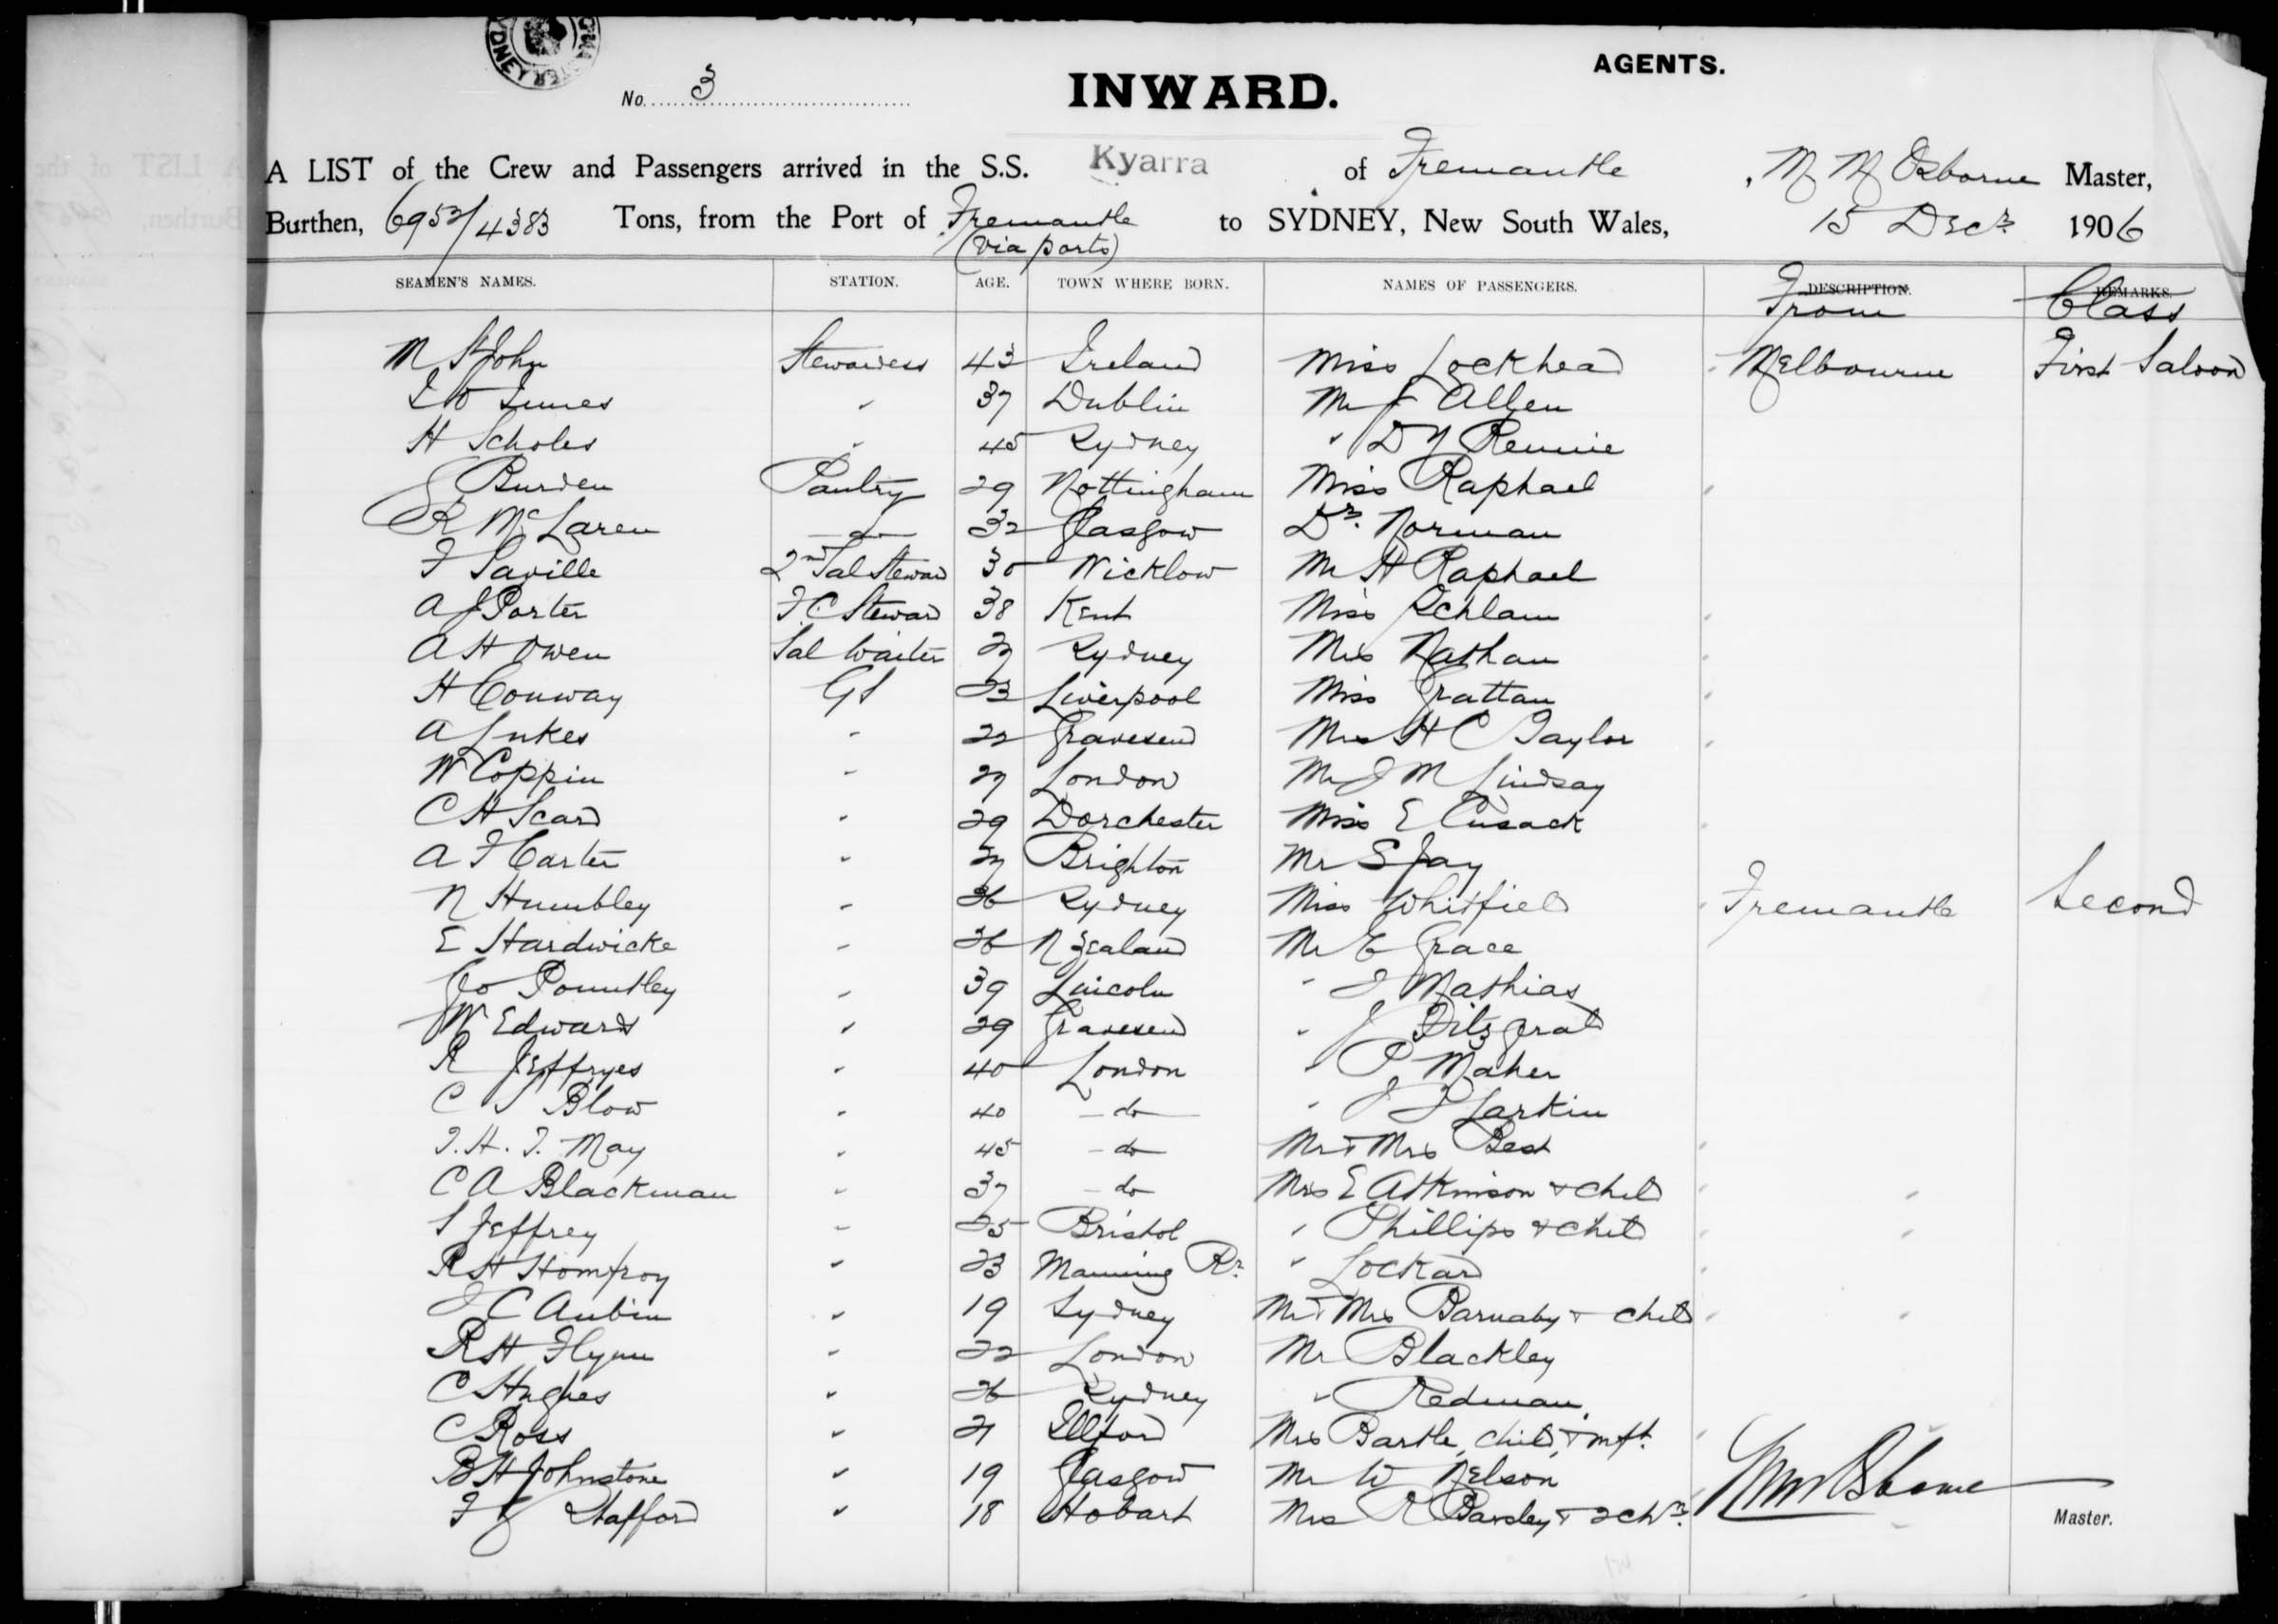 AGENTS.
No. 3
INWARD.
A LIST of the Crew and Passengers arrived in the S.S. Kyarra of Fremantle, Osborne Master,
Burthen, 6952/4383 Tons, from the Port of Fremantle (via ports) to SYDNEY, New South Wales, 15 Decr 1906
SEAMEN'S NAMES. STATION. AGE. TOWN WHERE BORN. NAMES OF PASSENGERS. DESCRIPTION. From REMARKS. Class
M St John Stewardess 43 Ireland Miss Lockhead Melbourne First Saloon
37 Dublin Mr J Allen
H Scholes 45 Sydney " D Y Rennie
J Burden Pantry 29 Nottingham Miss Raphael
R McLaren do 32 Glasgow Dr. Norman
F Saville 2nd Sal Steward 30 Wicklow Mr H Raphael
A J Porter F.C. Steward 38 Kent Miss Schlam
A H Owen Sal Waiter 27 Sydney Mrs Nathan
H Conway GS 23 Liverpool Miss Grattan
A Lukes " 22 Gravesend Mrs H C Taylor
W Coppin " 27 London Mr J M Lindsay
C H Scard " 29 Dorchester Miss E Cusack
A F Carter " 27 Brighton Mr S Jay
N Humbley " 26 Sydney Miss Whitfield Fremantle Second
E Hardwicke " 26 N Zealand Mr E Grace
Jo Pountley " 39 Lincoln " J Mathias
W Edwards " 29 Gravesend " J Fitzgerald
R Jeffryes " 40 London " P Maher
C S Blow " 40 do " J J Larkin
T. H. T. May " 45 do Mr & Mrs Best
C A Blackman " 37 do Mrs E Atkinson & child
S Jeffrey " 25 Bristol " Phillips & child
R H Homfroy " 23 Manning Rr " Lockard
J C Aubin " 19 Sydney Mr & Mrs Barnaby & child
R H Flynn " 22 London Mr Blackley
C Hughes " 26 Sydney " Redman
C Ross " 21 Illford Mrs Bartle, child & inft.
B H Johnstone " 19 Glasgow Mr W Nelson
F J Stafford " 18 Hobart Mrs R Barsley & 2 chn.
Master.